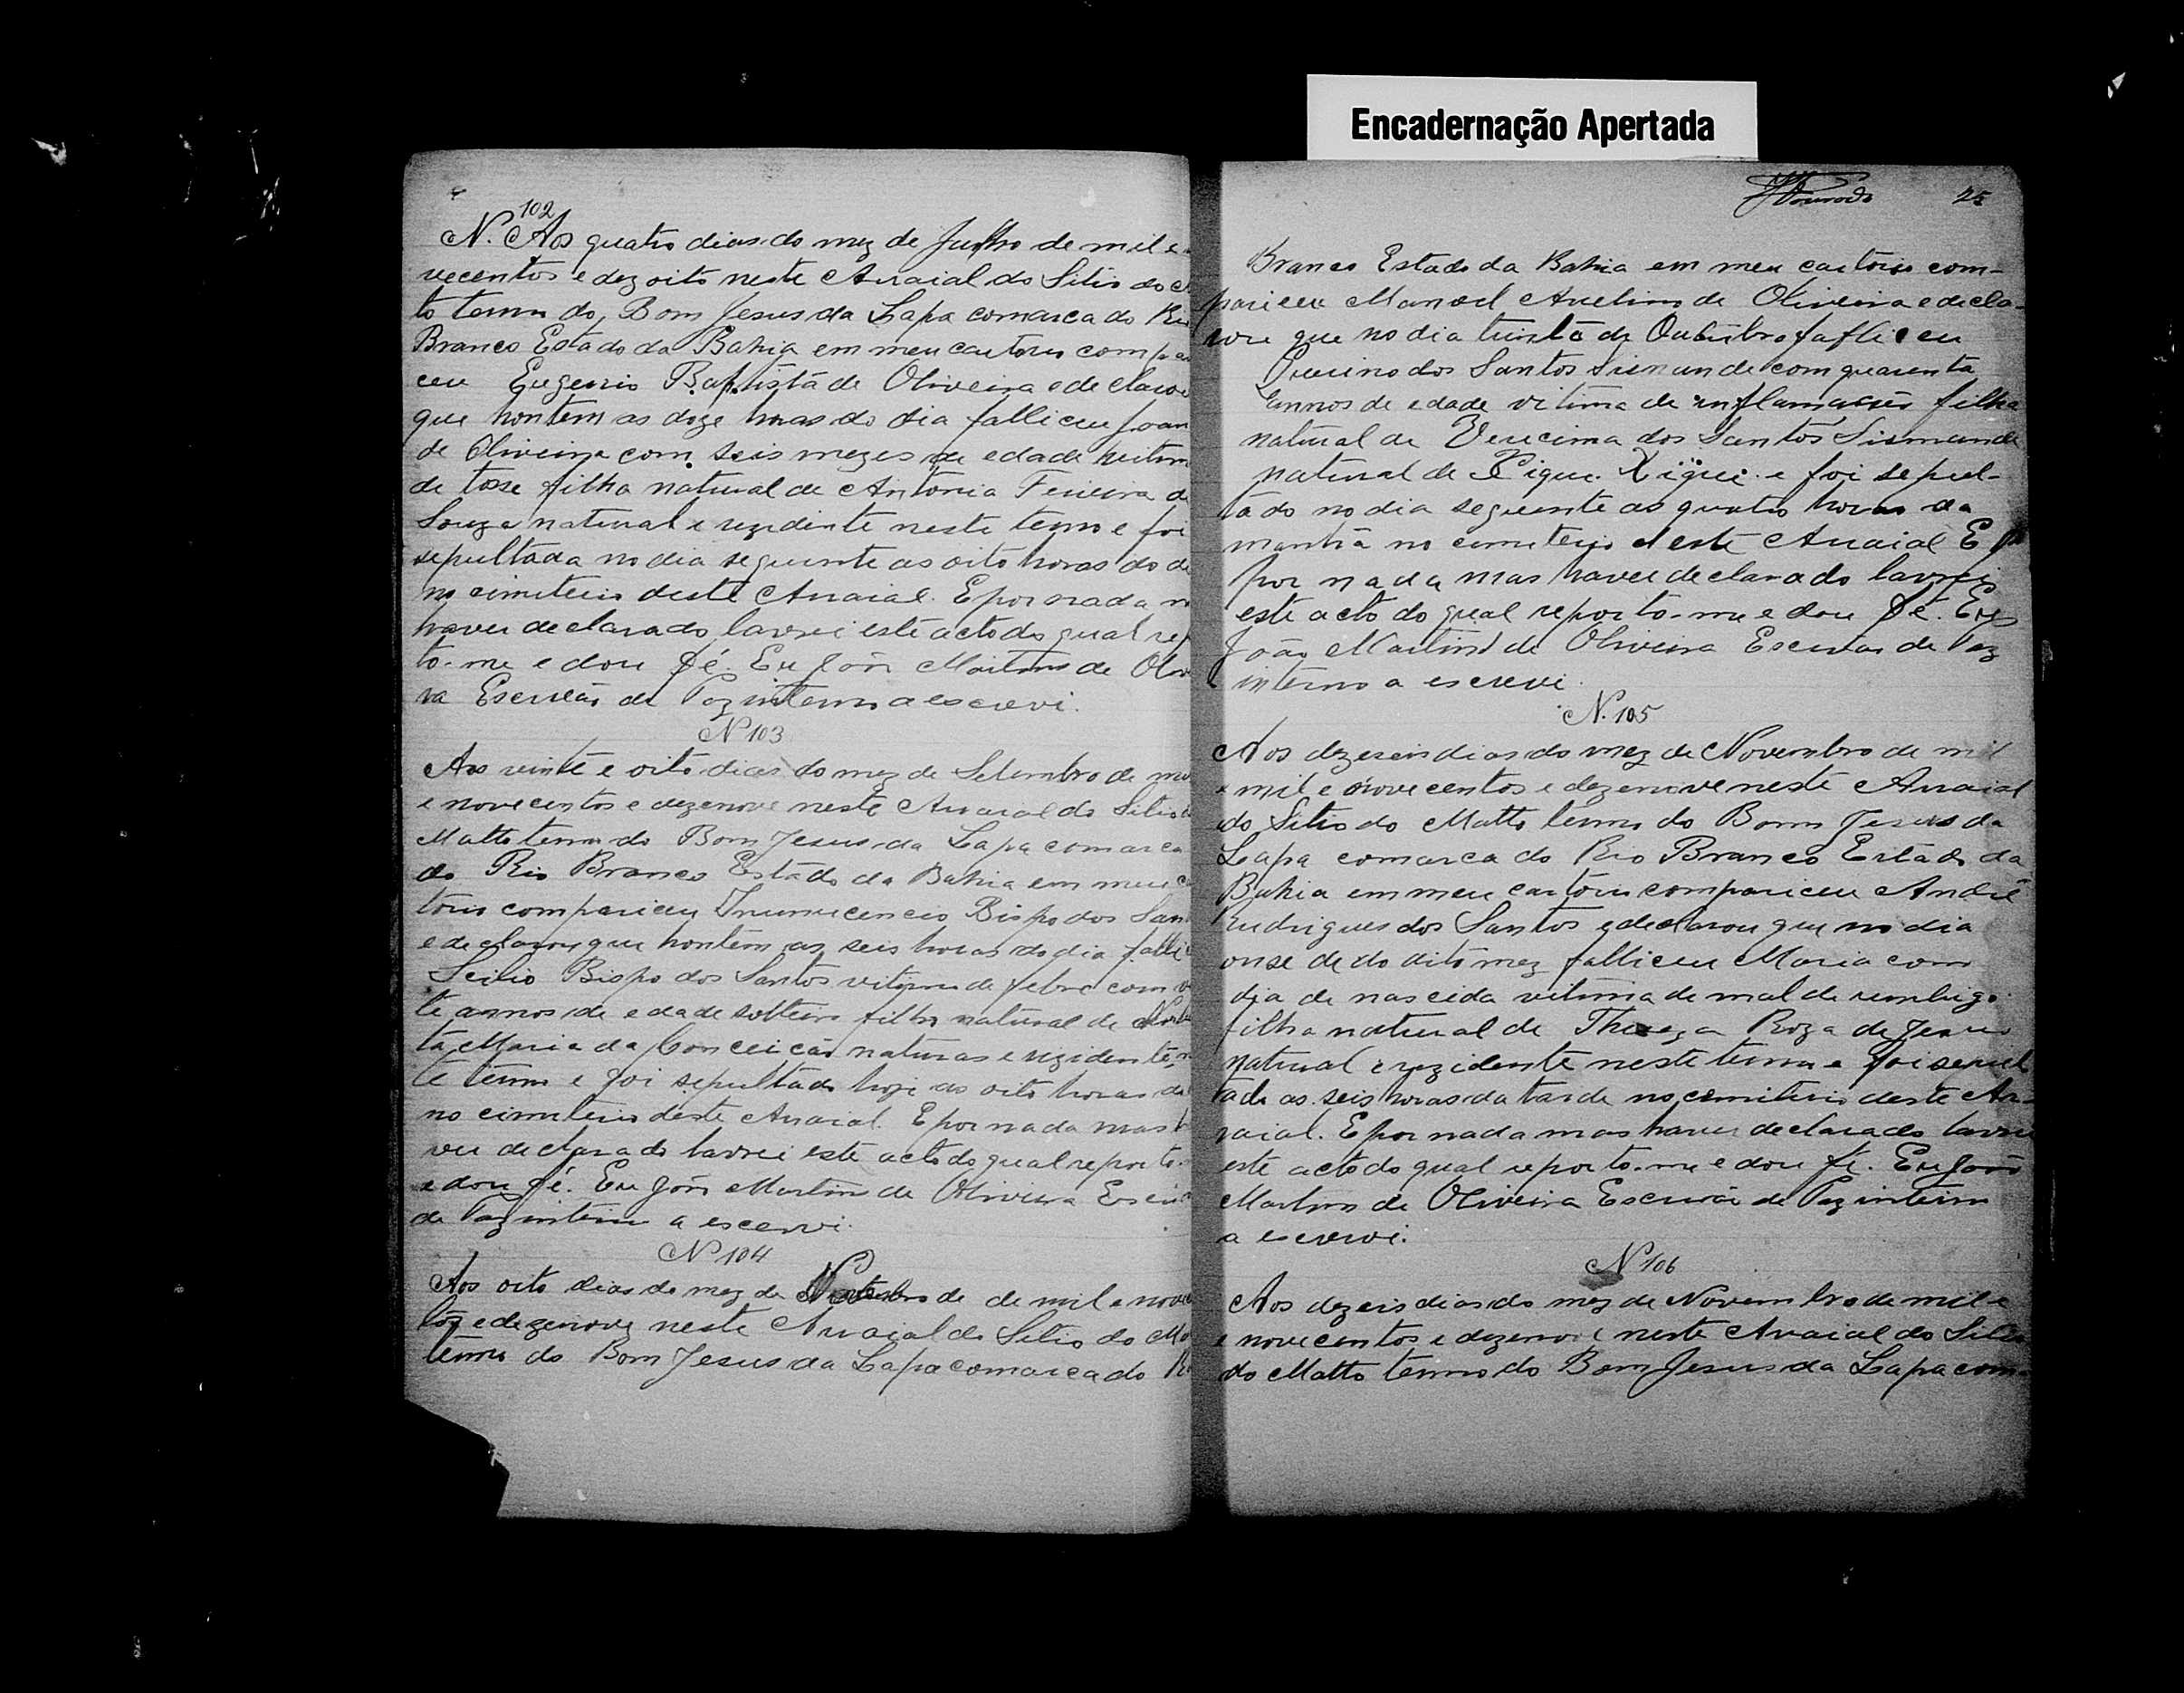 Encadernação Apertada
102
N. Aos quatro dias do mez de Julho de mil e
vecentos e dezoito neste Arraial do Sitio do
to termo do, Bom Jesus da Lapa comarca do Rio
Branco Estado da Bahia em meu cartorio compa
ceu Eugenio Baptista de Oliveira e declarou
que hontem as doze horas do dia falliceu Joan
de Oliveira com seis mezes de edade vitim
de tosse filha natural de Antonia Ferreira de
Souza natural e rezidente neste termo e foi
sepultada no dia seguinte as oito horas do di
no cimiterio deste Arraial. E por nada m
haver declarado lavrei este acto do qual rep
to-me e dou fé. Eu João Martins de Olivei
ra Escrivão de Paz interno a escrevi.
N 103
Aos vinte e oito dias do mez de Setembro de mil
e novecentos e dezenove neste Arraial do Sitio d
Matto termo do Bom Jesus da Lapa comarca
do Rio Branco Estado da Bahia em meu ca
torio compariceu Inunucencio Bispo dos San
e declarou que hontem as seis horas do dia falli
Scilio Bispo dos Santos vitima de febre com v
te annos de edade solteiro filho natural de
ta Maria da Conceição naturas e rezidente n
te termo e foi sepultado hoje as oito horas do
no cimiterio deste Arraial. E por nada mas h
ver declarado lavrei este acto do qual reporto-
e dou fé. Eu João Martins de Oliveira Escriv
de Paz interino a escervi.
N 104
Aos oito dias do mez de de mil e nove
tos e dezenove neste Arraial do Sitio do Ma
termo do Bom Jesus da Lapa comarca do Ri
25
Branco Estado da Bahia em meu cartorio com-
pariceu Manoel Avelino de Oliveira e decla-
rou que no dia trinta de Outubro falliceu
Quirino dos Santos Sismunde com quarenta
annos de edade vitima de inflamacão filho
natural de Vericima dos Santos Sismunde
natural de Xique-Xique e foi sepul-
tado no dia seguente as quatro horas da
manhã no cimeterio deste Arraial E
por nada mas haver declarado lavrei
este acto do qual reporto-me e dou fé. Eu
João Martins de Oliveira Escrivão de Paz
interno a escrevi.
N. 105
Aos dezeseis dias do mez de Novembro de mil
e mil e novecentos e dezenove neste Arraial
do Sitio do Matto termo do Bom Jesus da
Lapa comarca do Rio Branco Estado da
Bahia em meu cartorio compariceu André
Rudrigues dos Santos e declarou que no dia
onse de do dito mez falliceu Maria com
dia de nascida vitima de mal de umbigo
filha natural de Thereza Roza de Jesus
natural e rezidente neste termo e foi sepul
tada as seis horas da tarde no cemiterio deste Ar-
raial. E por nada mas haver declarado lavrei
este acto do qual reporto-me e dou fé. Eu João
Martins de Oliveira Escrivão de Paz interino
a escrevi.
N 106
Aos dezeis dias do mez de Novembro de mil e
e novecentos e dezenove neste Arraial do Sitio
do Matto termo do Bom Jesus da Lapa com-